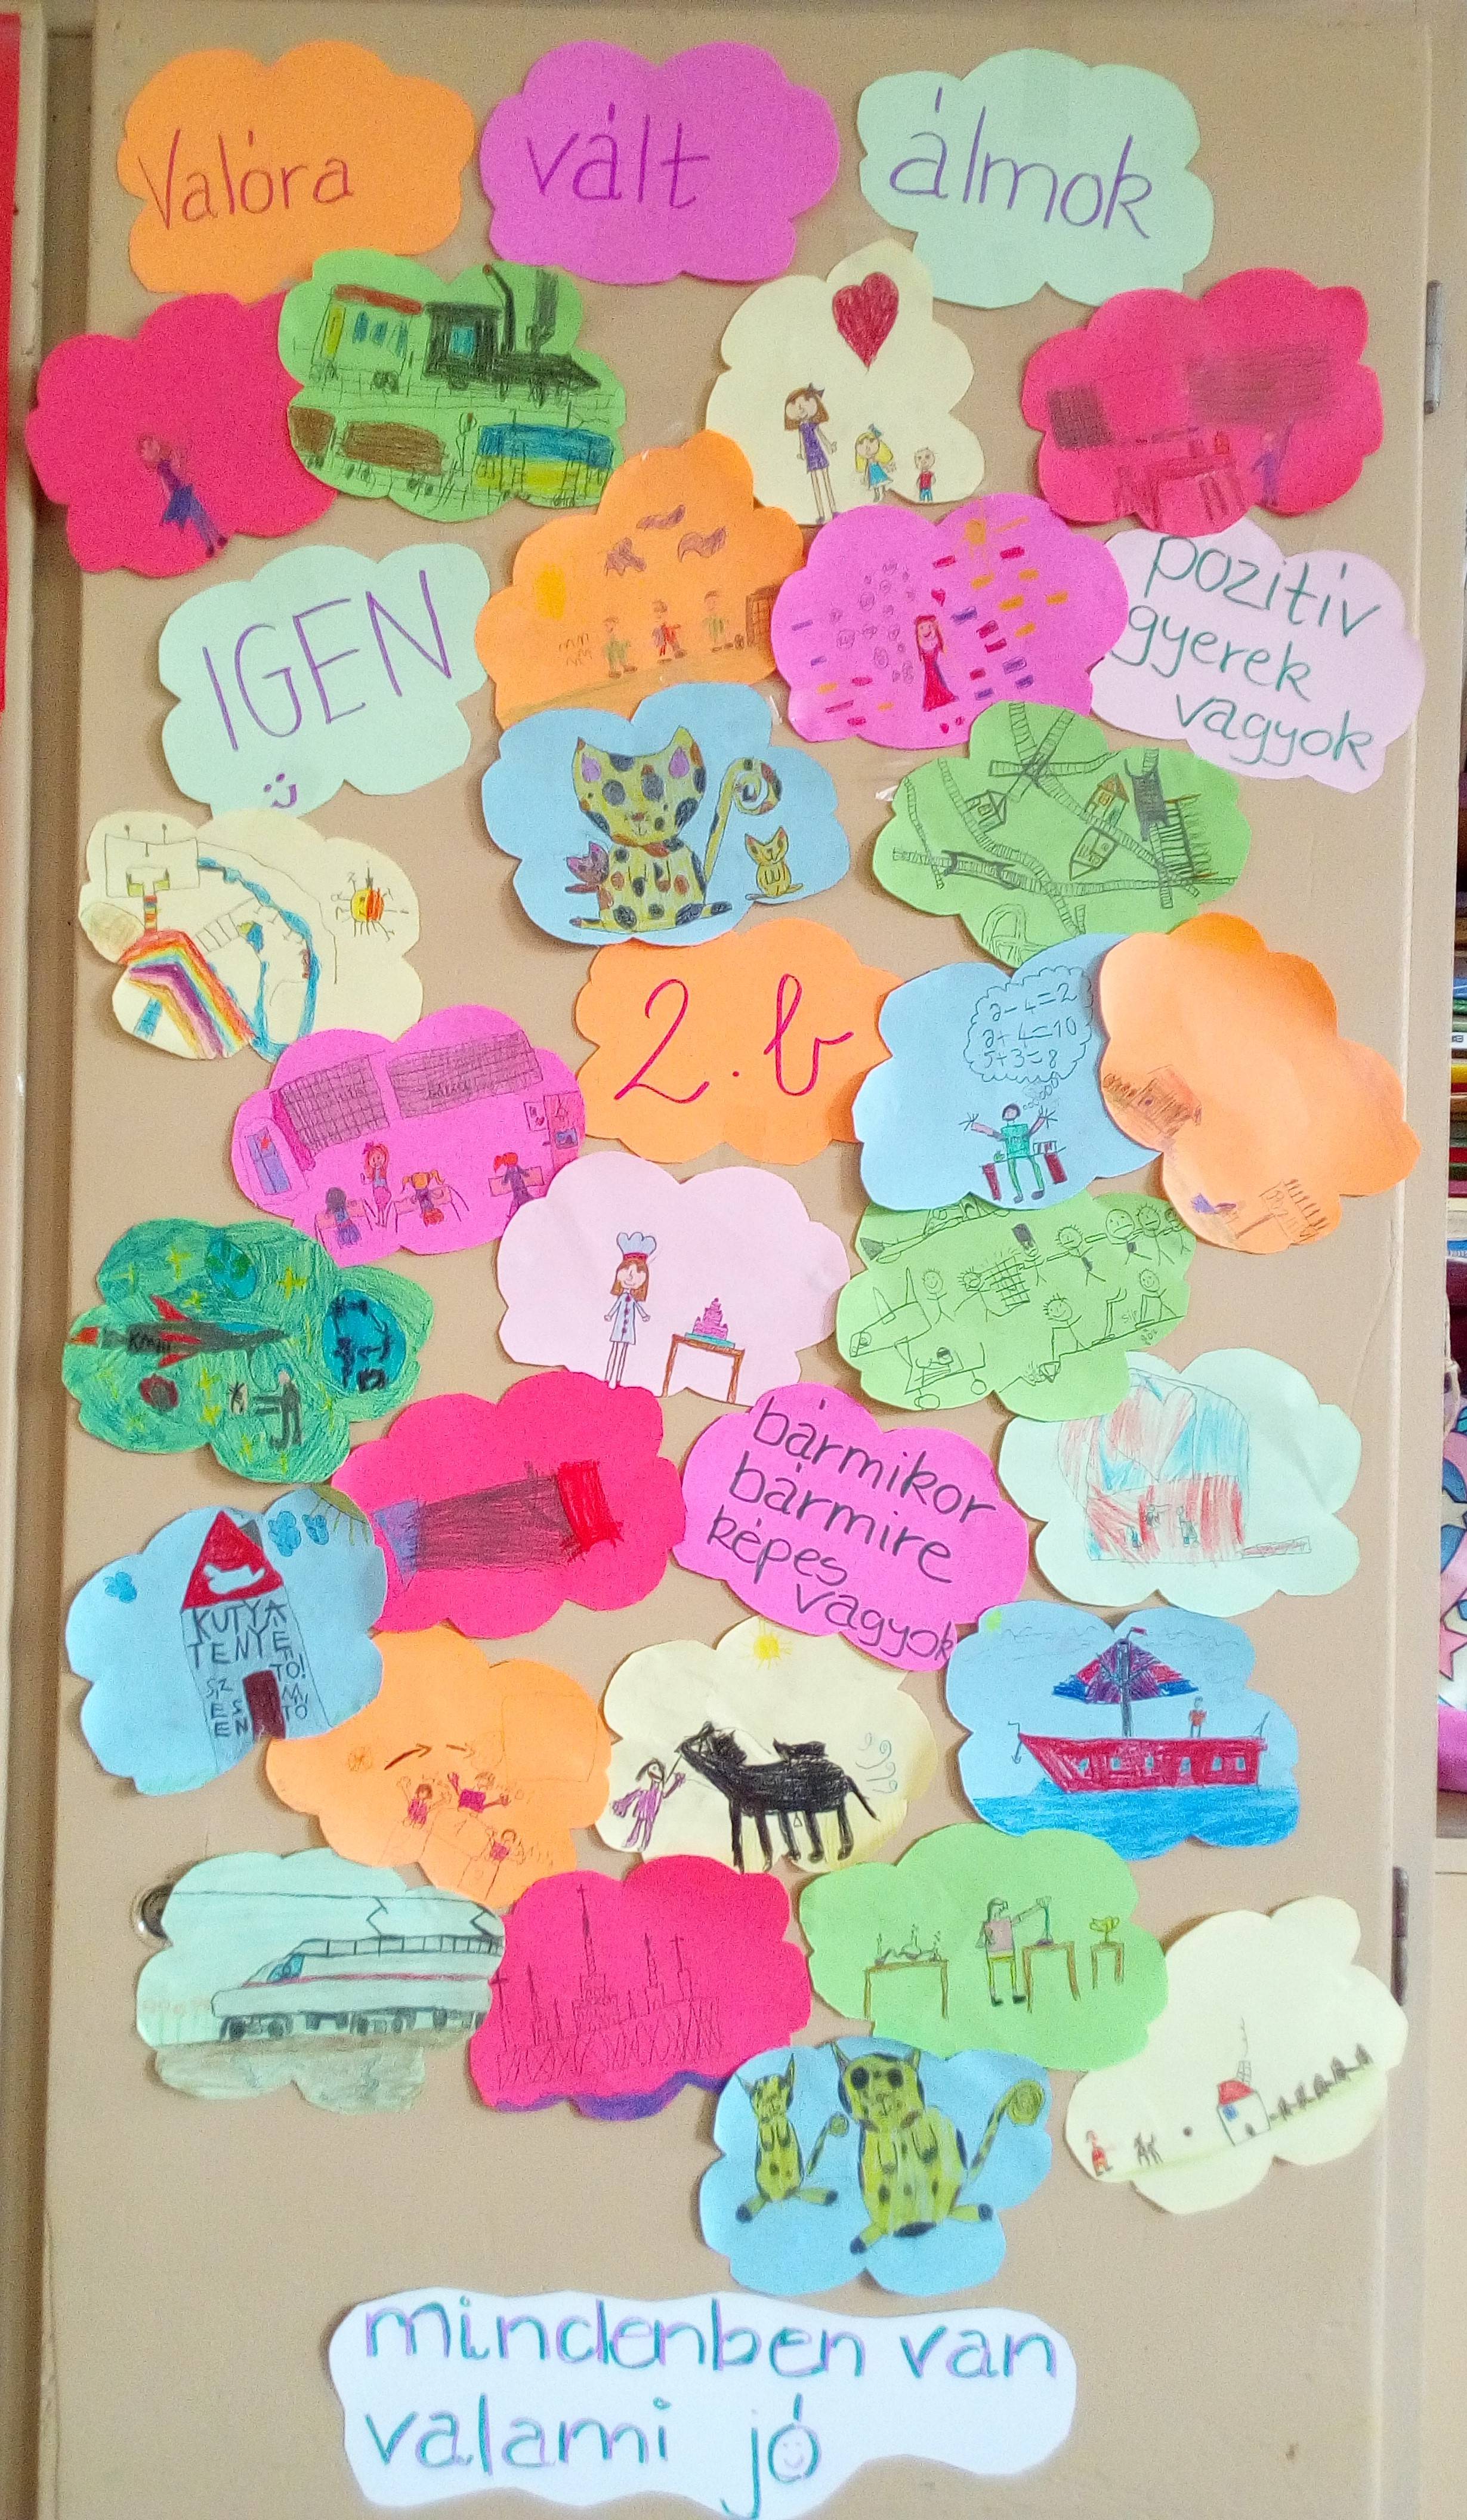 Valóra
vált
álmok
IGEN
pozitív
gyerek
vagyok
2.b
2-4=2
2+4=10
5+3=8
bármikor
bármire
képes
vagyok
KUTYA
TENYÉ
TŐ!
mindenben van
valami jó